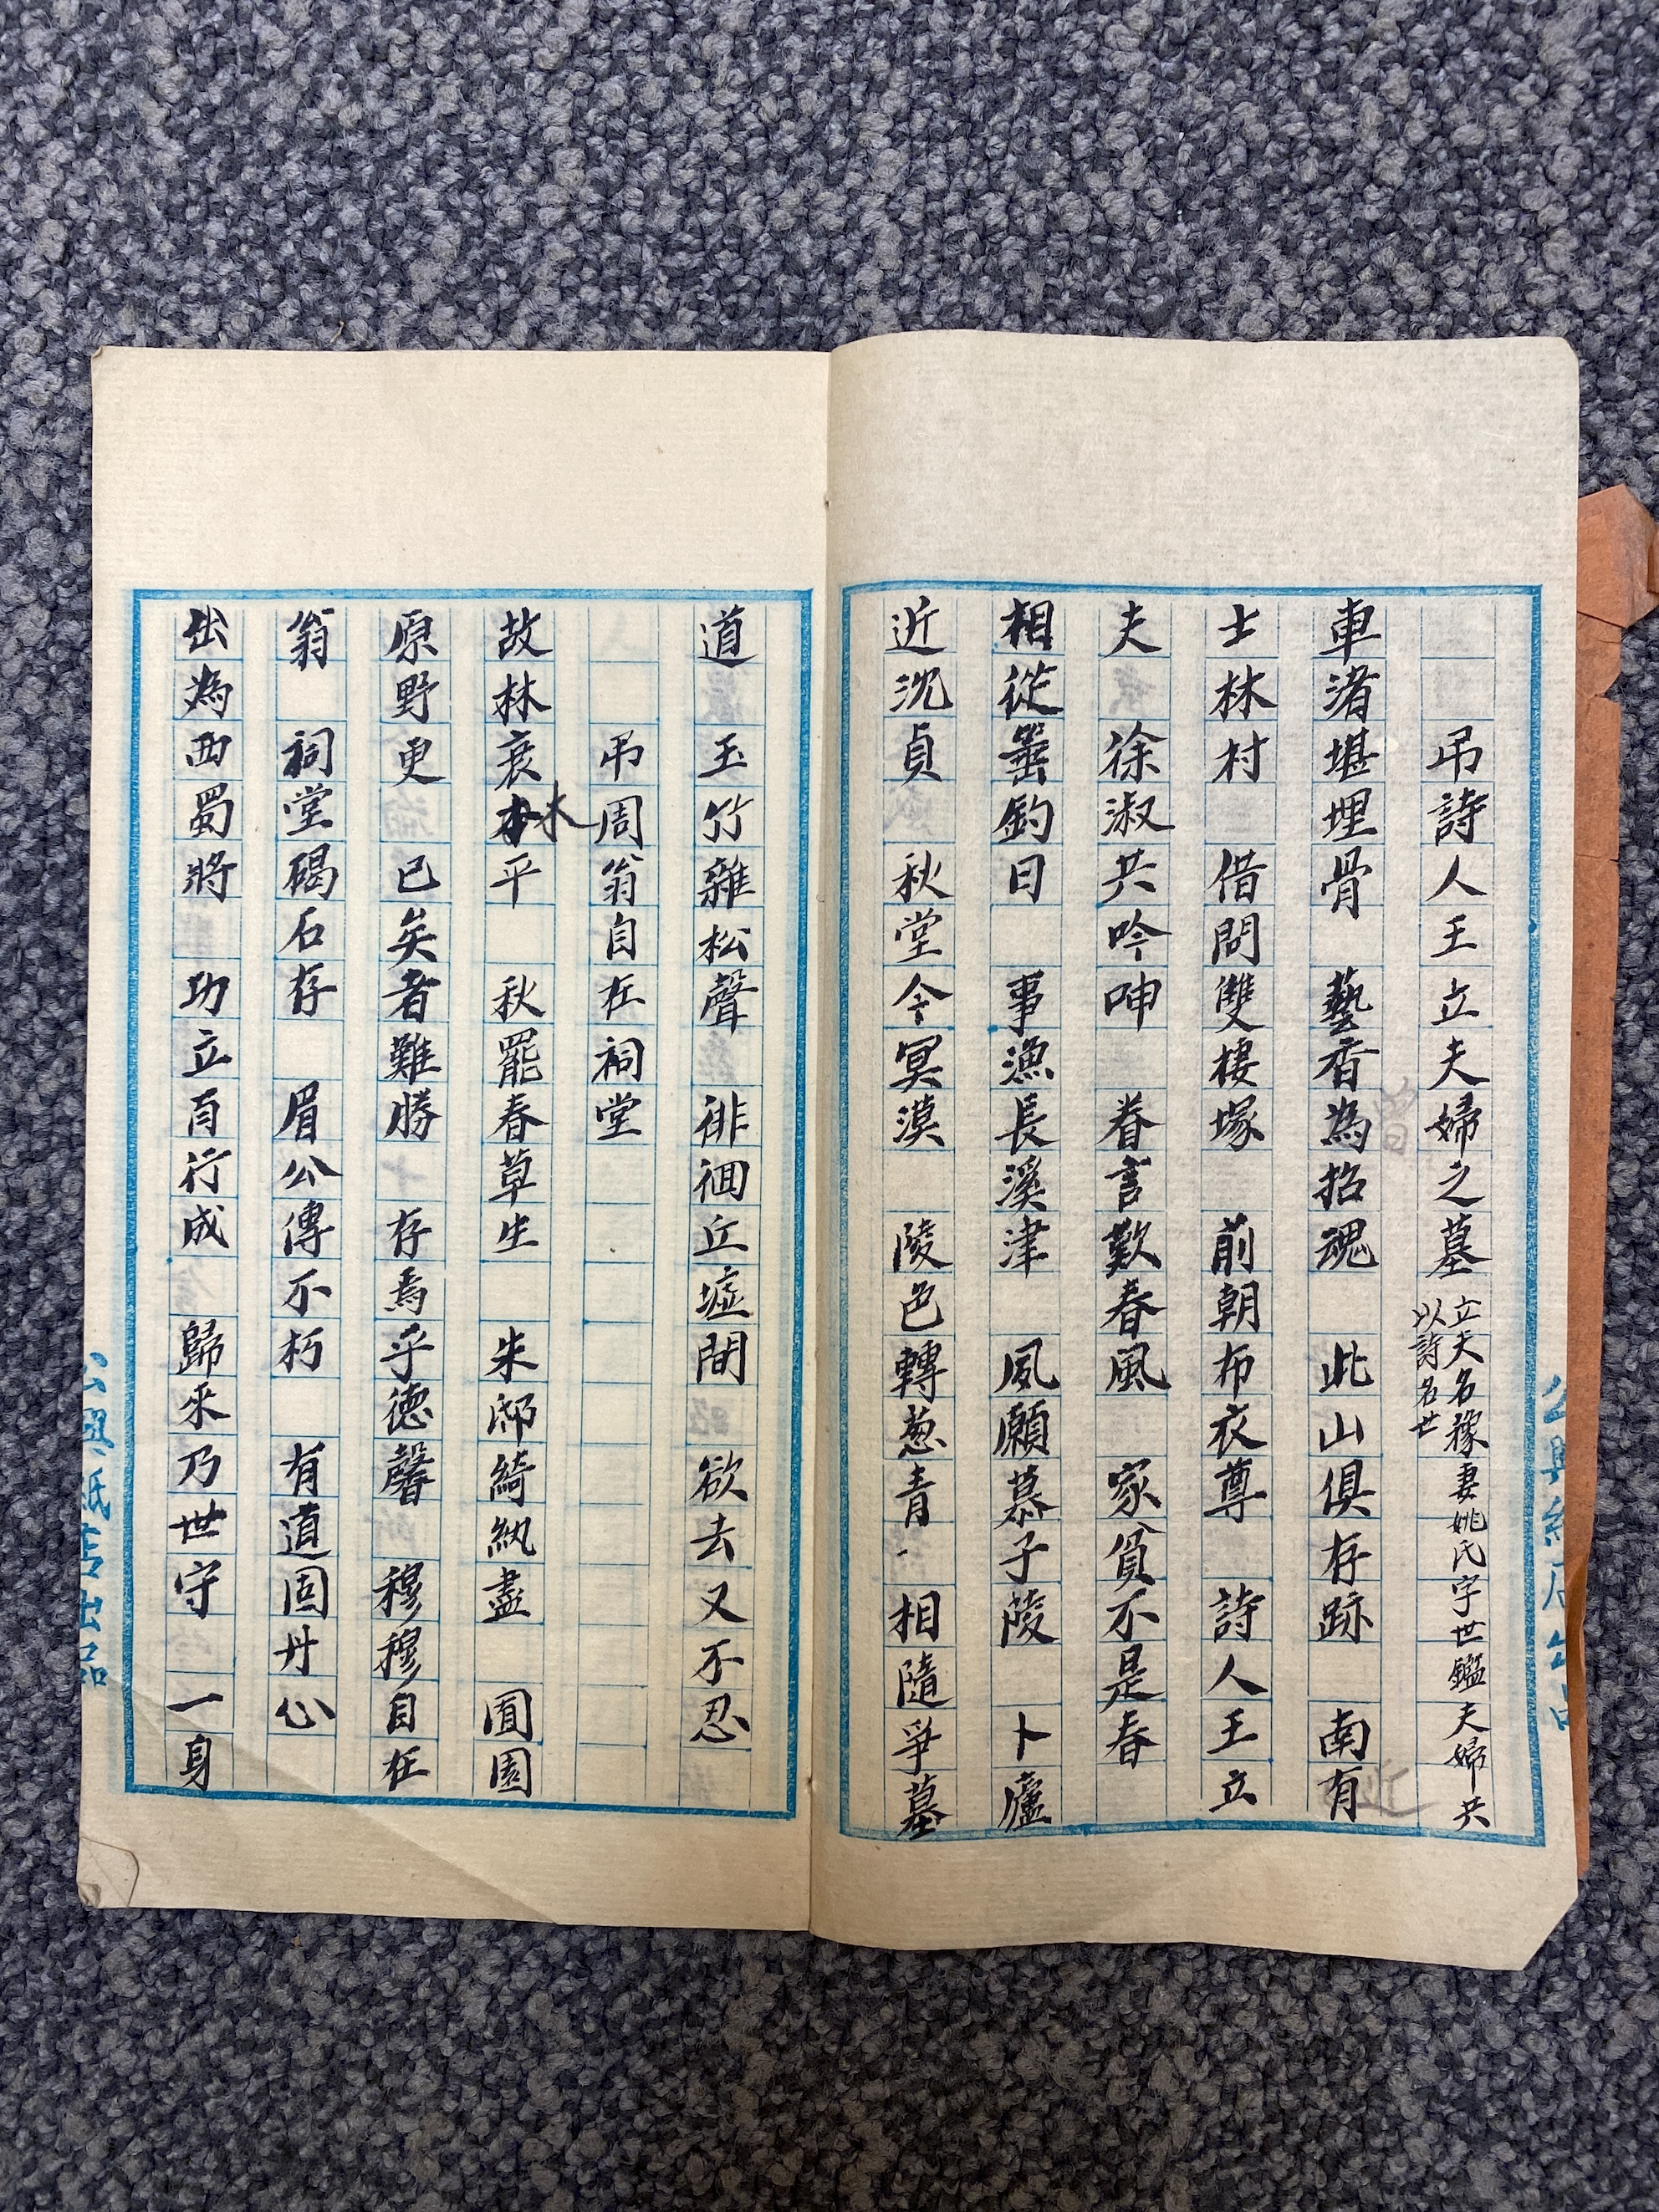 弔詩人王立夫婦之墓 立夫名稼妻姚氏字世鑑夫婦共
以詩名世
車渚堪埋骨 藝香為招魂 此山俱存跡 南有
士林村 借問雙棲塚 前朝布衣尊 詩人王立
夫 徐淑共吟呻 眷言歎春風 家貧不是春
相從垂釣日 事漁長溪津 夙願慕子陵 卜廬
近沈貞 秋堂今冥漠 陵色轉葱青 相隨爭墓
道 玉竹雜松聲 徘徊丘墟間 欲去又不忍
弔周翁自在祠堂
故林衰木平 秋罷春草生 朱邸綺紈盡 園
原野更 已矣者難勝 存焉乎德馨 穆穆自在
翁 祠堂碣石存 眉公傳不朽 有道固丹心
出為西蜀將 功立百行成 歸來乃世守 一身
公興紙店出品
公興紙店出品